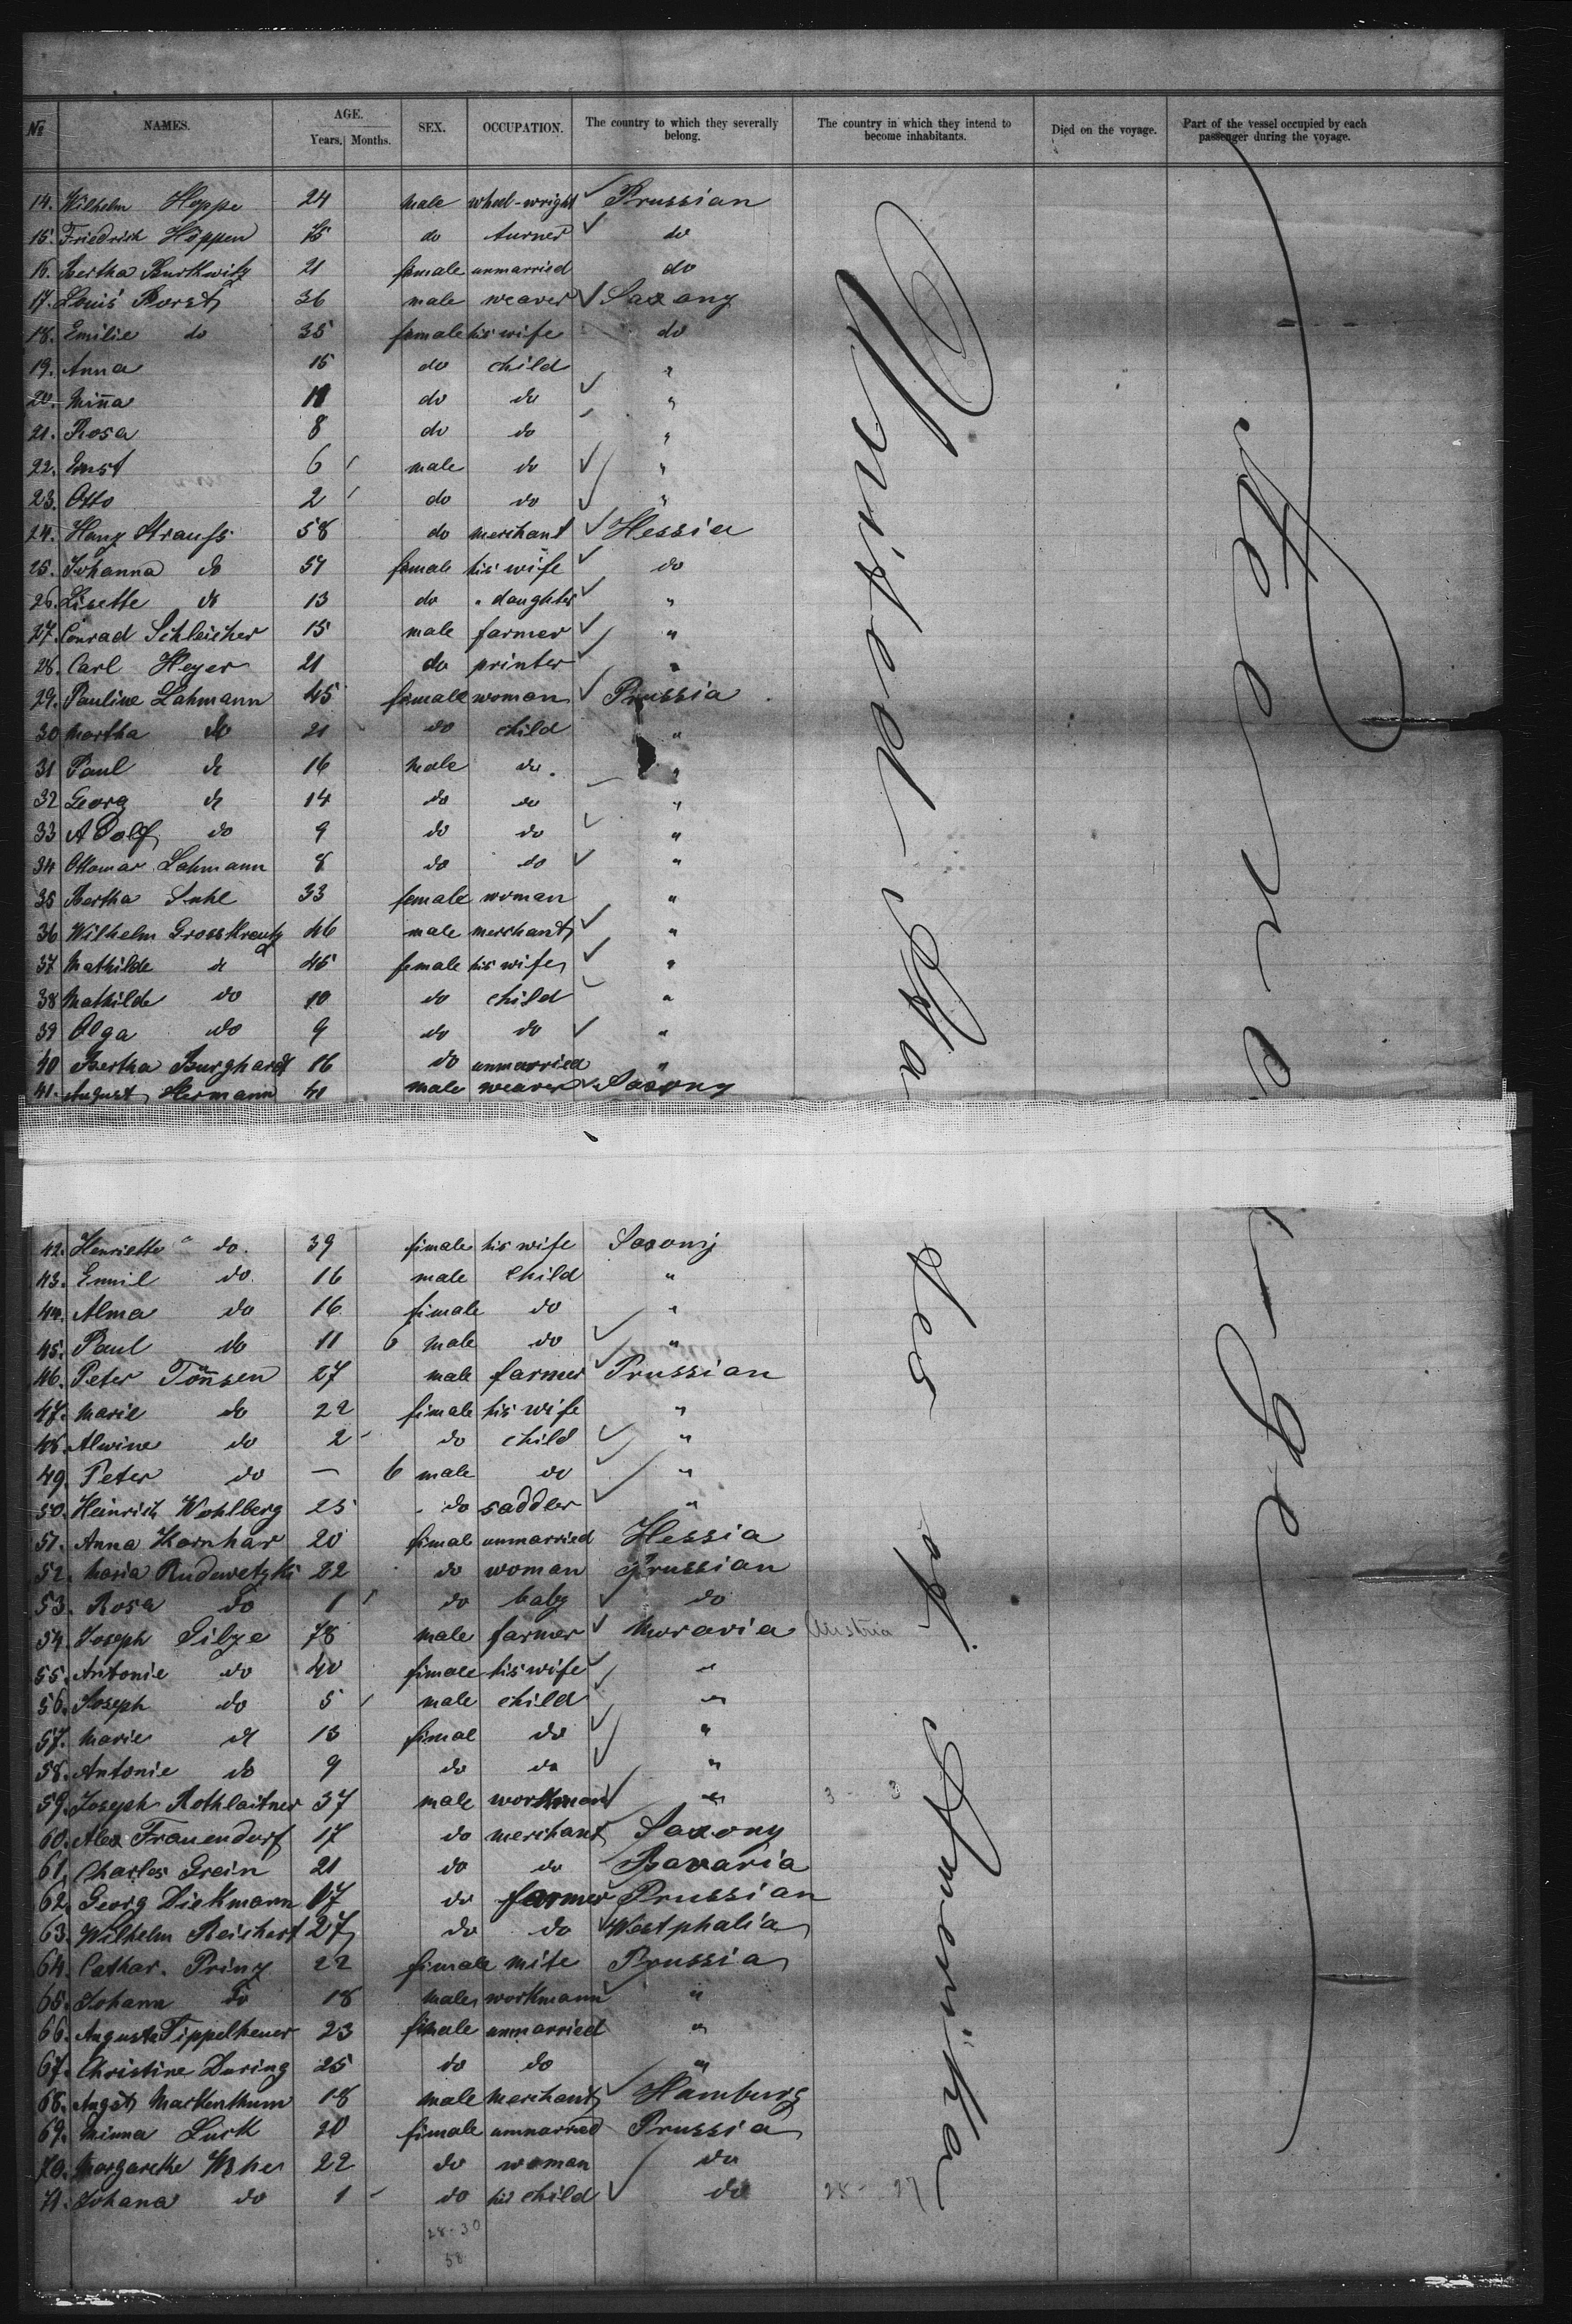 No NAMES. AGE. Years. Months. SEX. OCCUPATION. The country to which they severally belong. The country in which they intend to become inhabitants. Died on the voyage. Part of the vessel occupied by each passenger during the voyage.
14. Wilhelm Hoppe 24 male wheel-wright Prussian
15. Friedrich Höppen do turner do
16. Bertha Burkwitz 21 female unmarried do
17. Louis Borst 36 male weaver Saxony
18. Emilie do 35 female his wife do
19. Anna 15 do child "
20. Miña do do "
21. Rosa 8 do do "
22. Ernst 6 male do "
23. Otto 2 do do "
24. Strauss 58 do merchant Hessia
25. Johanna do 57 female his wife do
26. Lisette do 13 do " daughter "
27. Conrad Schleicher 15 male farmer "
28. Carl Heyer 21 do printer "
29. Pauline Lahmann 45 female woman Prussia
30 Martha do 21 do child "
31 Paul do 16 male do. "
32 Georg do 14 do do "
33 Adolf do 9 do do "
34 Ottomar Lahmann 8 do do "
35 Bertha Suhl 33 female woman "
36 Wilhelm Grosskreutz 46 male merchant "
37 Mathilde do 45 female his wife "
38 Mathilde do 10 do child "
39 Olga do 9 do do "
40 Bertha Burghardt 16 do unmarried "
41. August Hermann 41 male weaver Saxony
42. Henriette do. 39 female his wife Saxony
43. Emil do 16 male child "
44. Alma do 16 fimale do "
45. Paul do 11 6 male do "
46. Peter Tönnsen 27 male farmer Prussian
47. Marie do 22 fimale his wife "
48. Alwine do 2 do child "
49. Peter do — 6 male do "
50. Heinrich Wohlberg 25 do saddler "
51. Anna Kornhar 20 fimal unmarried Hessia
52. Maria Rudewetzki 22 do woman Prussian
53. Rosa do 1 do baby do
54. Joseph Silge 78 male farmer Moravia Austria
55. Antonie do 40 fimale his wife "
56. Joseph do 5 male child "
57. Marie do 13 fimal do "
58. Antonie do 9 do do "
59. Joseph Rothlaitner 37 male workman " 3 - 3
60. Alex Frauendorf 17 do merchant Saxony
61. Charles Grein 21 do do Bavaria
62. Georg Diekmann 17 do farmer Prussian
63. Wilhelm Reichert 27 do do Westphalia
64. Cathar. Prinz 22 fimale Prussia
65. Johann do 18 male workmann "
66. Auguste Tippelheuer 23 fimale unmarried "
67. Christine During 25 do do "
68. Augst Markenthum 18 male merchant Hamburg
69. Minna Lück 20 fimale unmarried Prussia
70. Margarethe 22 do woman do
71. Johana do 1 do his child do 28 - 27
28-30
58
United States of America
Steerage